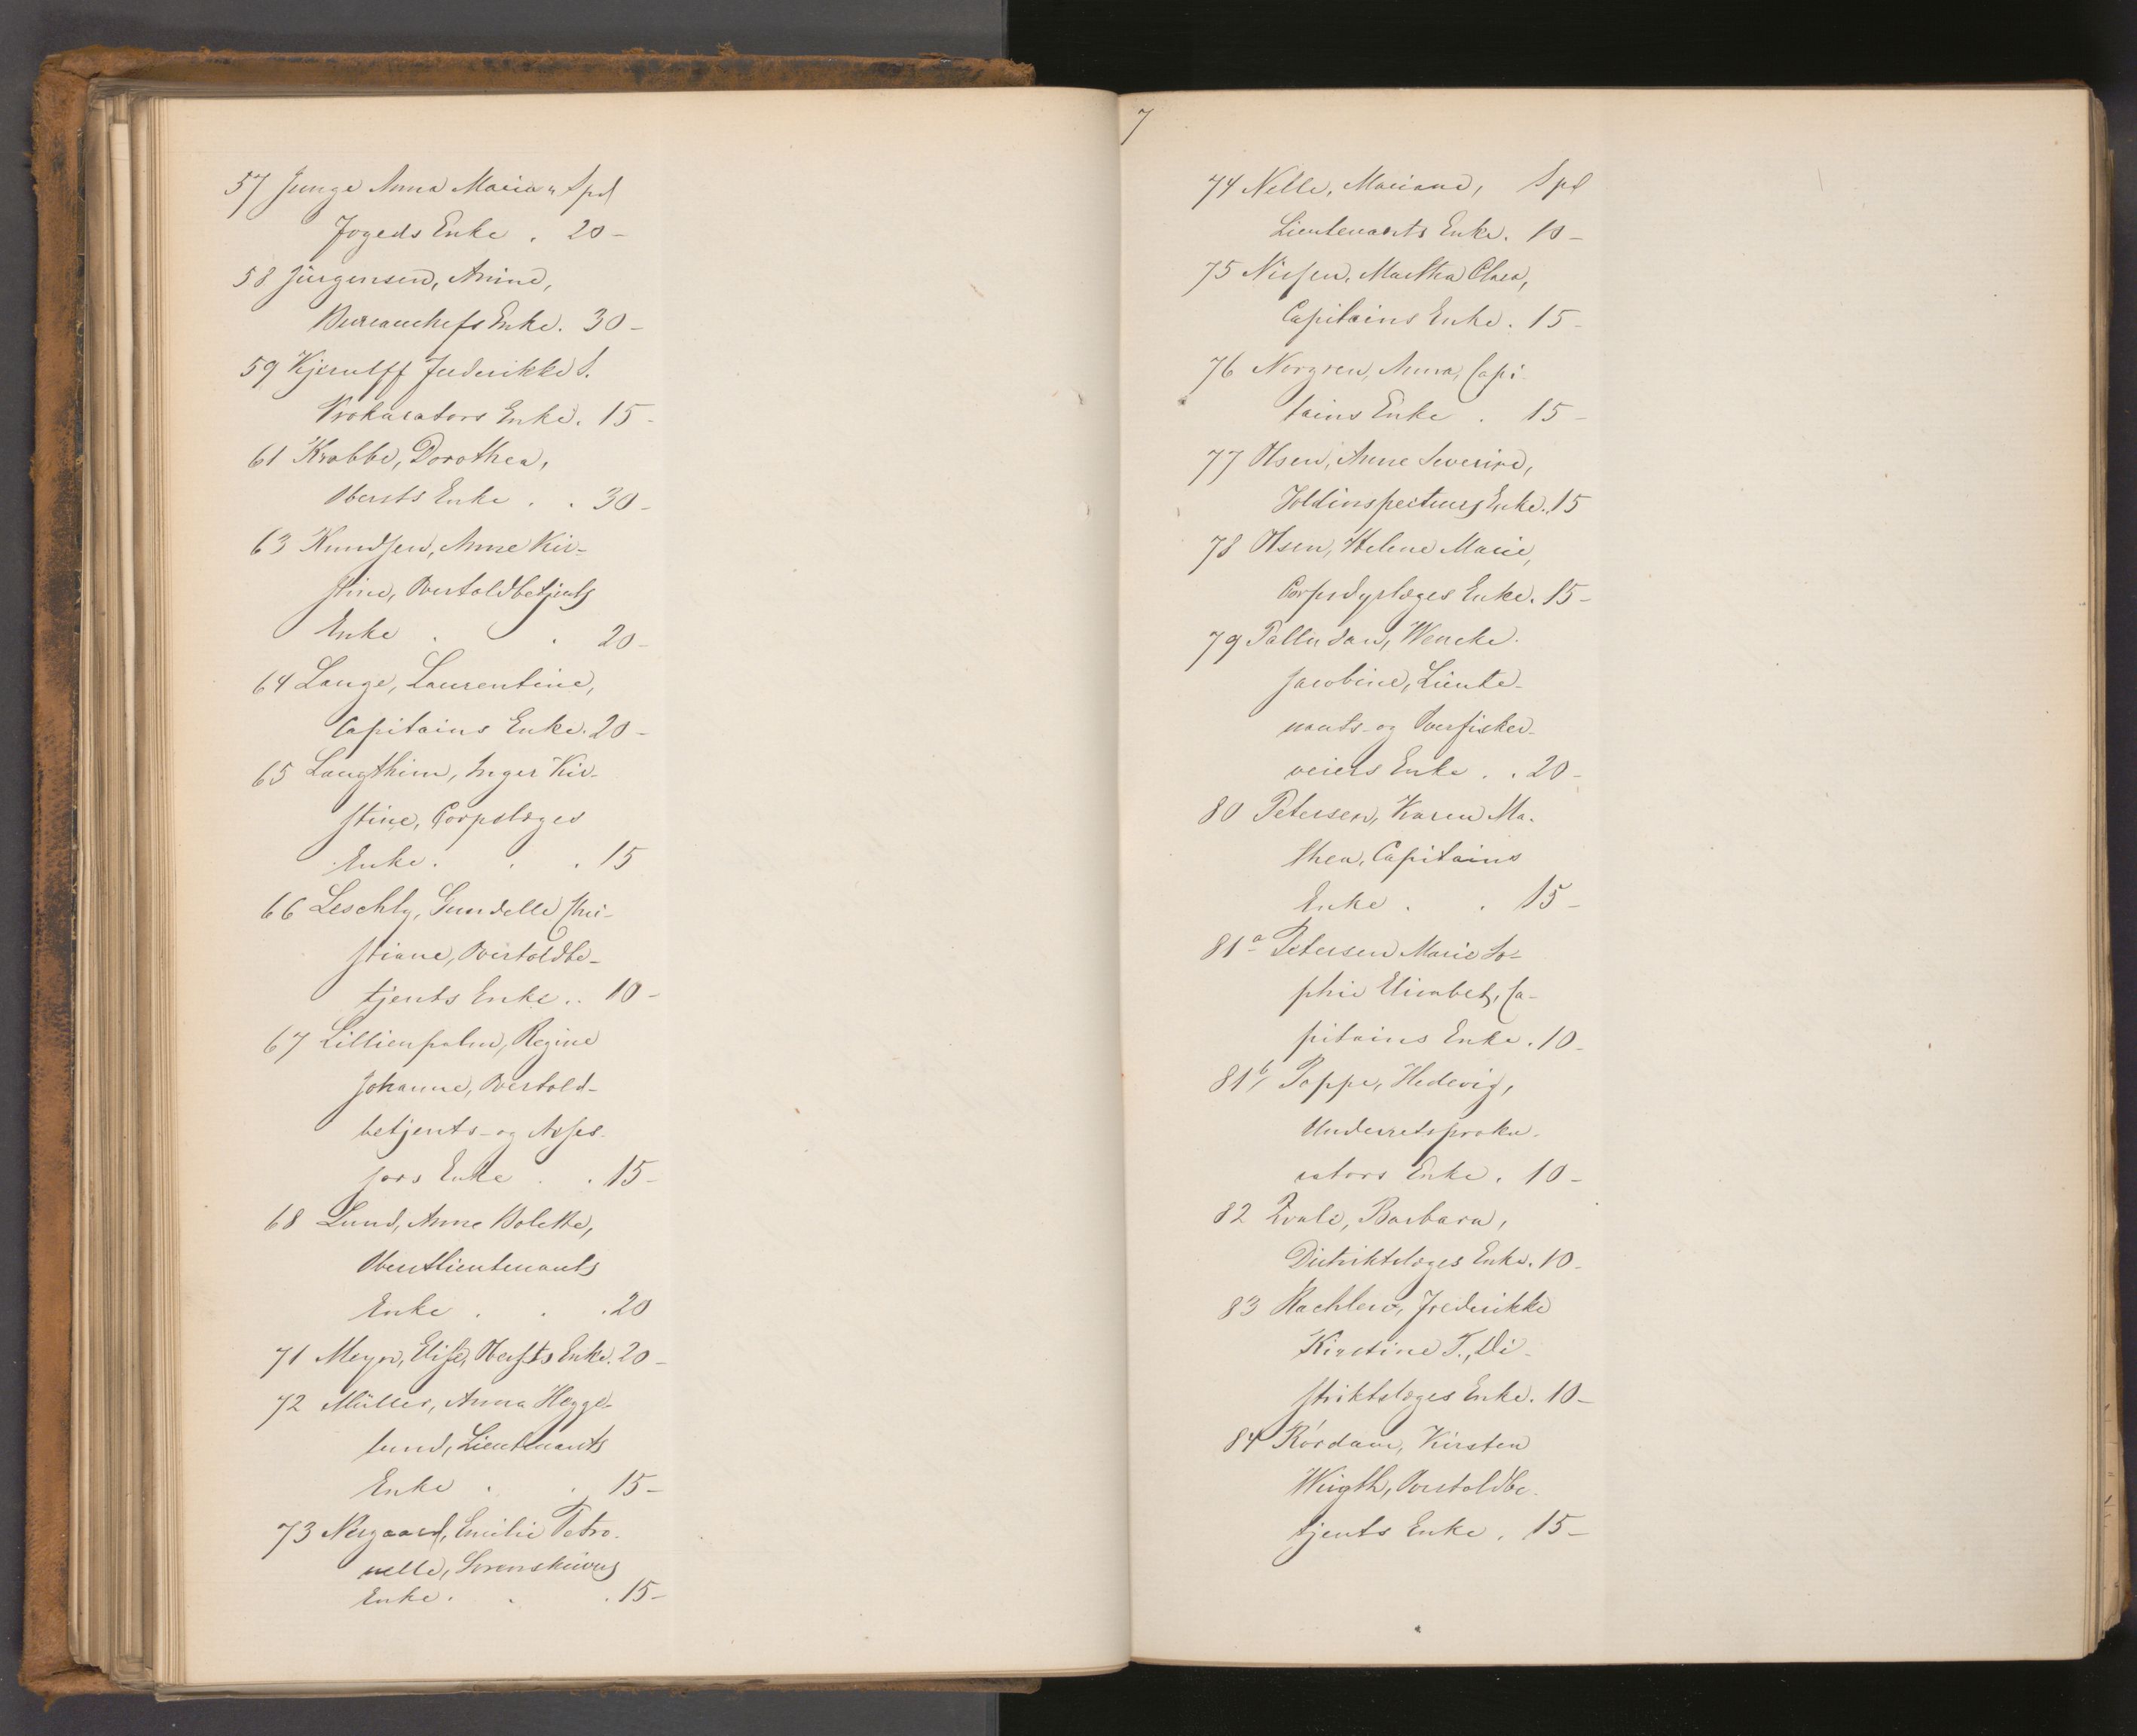 57 Junge Anna Maria, Spd
Fogeds Enke . 20 -
58 Jürgensen, Anine,
Bureauchefs Enke. 30 -
59 Kjerulff Frederikke S.
Prokurators Enke. 15 -
61 Krabbe, Dorothea,
Obersts Enke . . 30 -
63 Knudsen, Anne Kir-
stine, Overtoldbetjents
Enke . . 20 -
64 Lange, Laurentine,
Capitains Enke. 20 -
65 Langthim, Inger Kir-
stine, Corpslæges
Enke . . . 15
66 Leschly, Gundelle Chri-
stiane, Overtoldbe-
tjents Enke .. 10 -
67 Lillienpalm, Regine
Johanne, Overtold-
betjents- og Asses-
sors Enke . . 15 -
68 Lund, Anne Bolette,
Oberstlieutenants
Enke . . . 20
71 Meyn, Elise, Obersts Enke. 20 -
72 Müller, Anna Hegge-
lund, Lieutenants
Enke . . 15 -
73 Nergaard, Emilie Petro-
nelle, Sorenskrivers
Enke . . . 15 -
7
74 Nelle, Mariane, Spd
Lieutenants Enke. 10 -
75 Nissen, Martha Clara,
Capitains Enke. 15 -
76 Norgren, Anna, Capi-
tains Enke . 15 -
77 Olsen, Anne Severine,
Toldinspecteurs Enke. 15
78 Olsen, Helene Marie,
Corpsdyrlæges Enke. 15 -
79 Palludan, Wencke
Jacobine, Lieute-
nants- og Overfisker-
veiers Enke . . 20 -
80 Petersen, Karen Ma-
thea, Capitains
Enke . . 15 -
81 a Petersen Marie So-
phie Elisabet, Ca-
pitains Enke. 10 -
81 b, Poppe, Hedevig,
Underretsproku-
rators Enke. 10 -
82 Qvale, Barbara,
Distriktslæges Enke. 10 -
83 Rachlew, Frederikke
Kirstine T., Di-
striktslæges Enke. 10 -
84 Rördam, Kirsten
Wrigth, Overtoldbe-
tjents Enke. 15 -